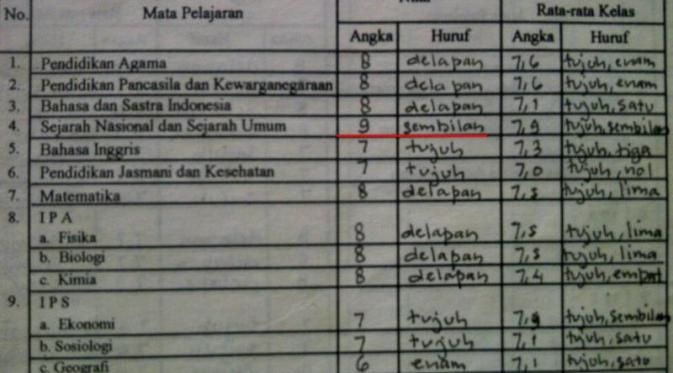 No. Mata Pelajaran Rata-rata Kelas
Angka Huruf Angka Huruf
1. Pendidikan Agama 8 delapan 7,6 tujuh, enam
2. Pendidikan Pancasila dan Kewarganegaraan 8 delapan 7,6 tujuh, enam
3. Bahasa dan Sastra Indonesia 8 delapan 7,1 tujuh, satu
4. Sejarah Nasional dan Sejarah Umum 9 sembilan 7,9 tujuh, sembilan
5. Bahasa Inggris 7 tujuh 7,3 tujuh, tiga
6. Pendidikan Jasmani dan Kesehatan 7 tujuh 7,0 tujuh, nol
7. Matematika 8 delapan 7,5 tujuh, lima
8. I P A
a. Fisika 8 delapan 7,5 tujuh, lima
b. Biologi 8 delapan 7,5 tujuh, lima
c. Kimia 8 delapan 7,4 tujuh, empat
9. I P S
a. Ekonomi 7 tujuh 7,9 tujuh, sembilan
b. Sosiologi 7 tujuh 7,1 tujuh, satu
c. Geografi 6 enam 7,1 tujuh, satu